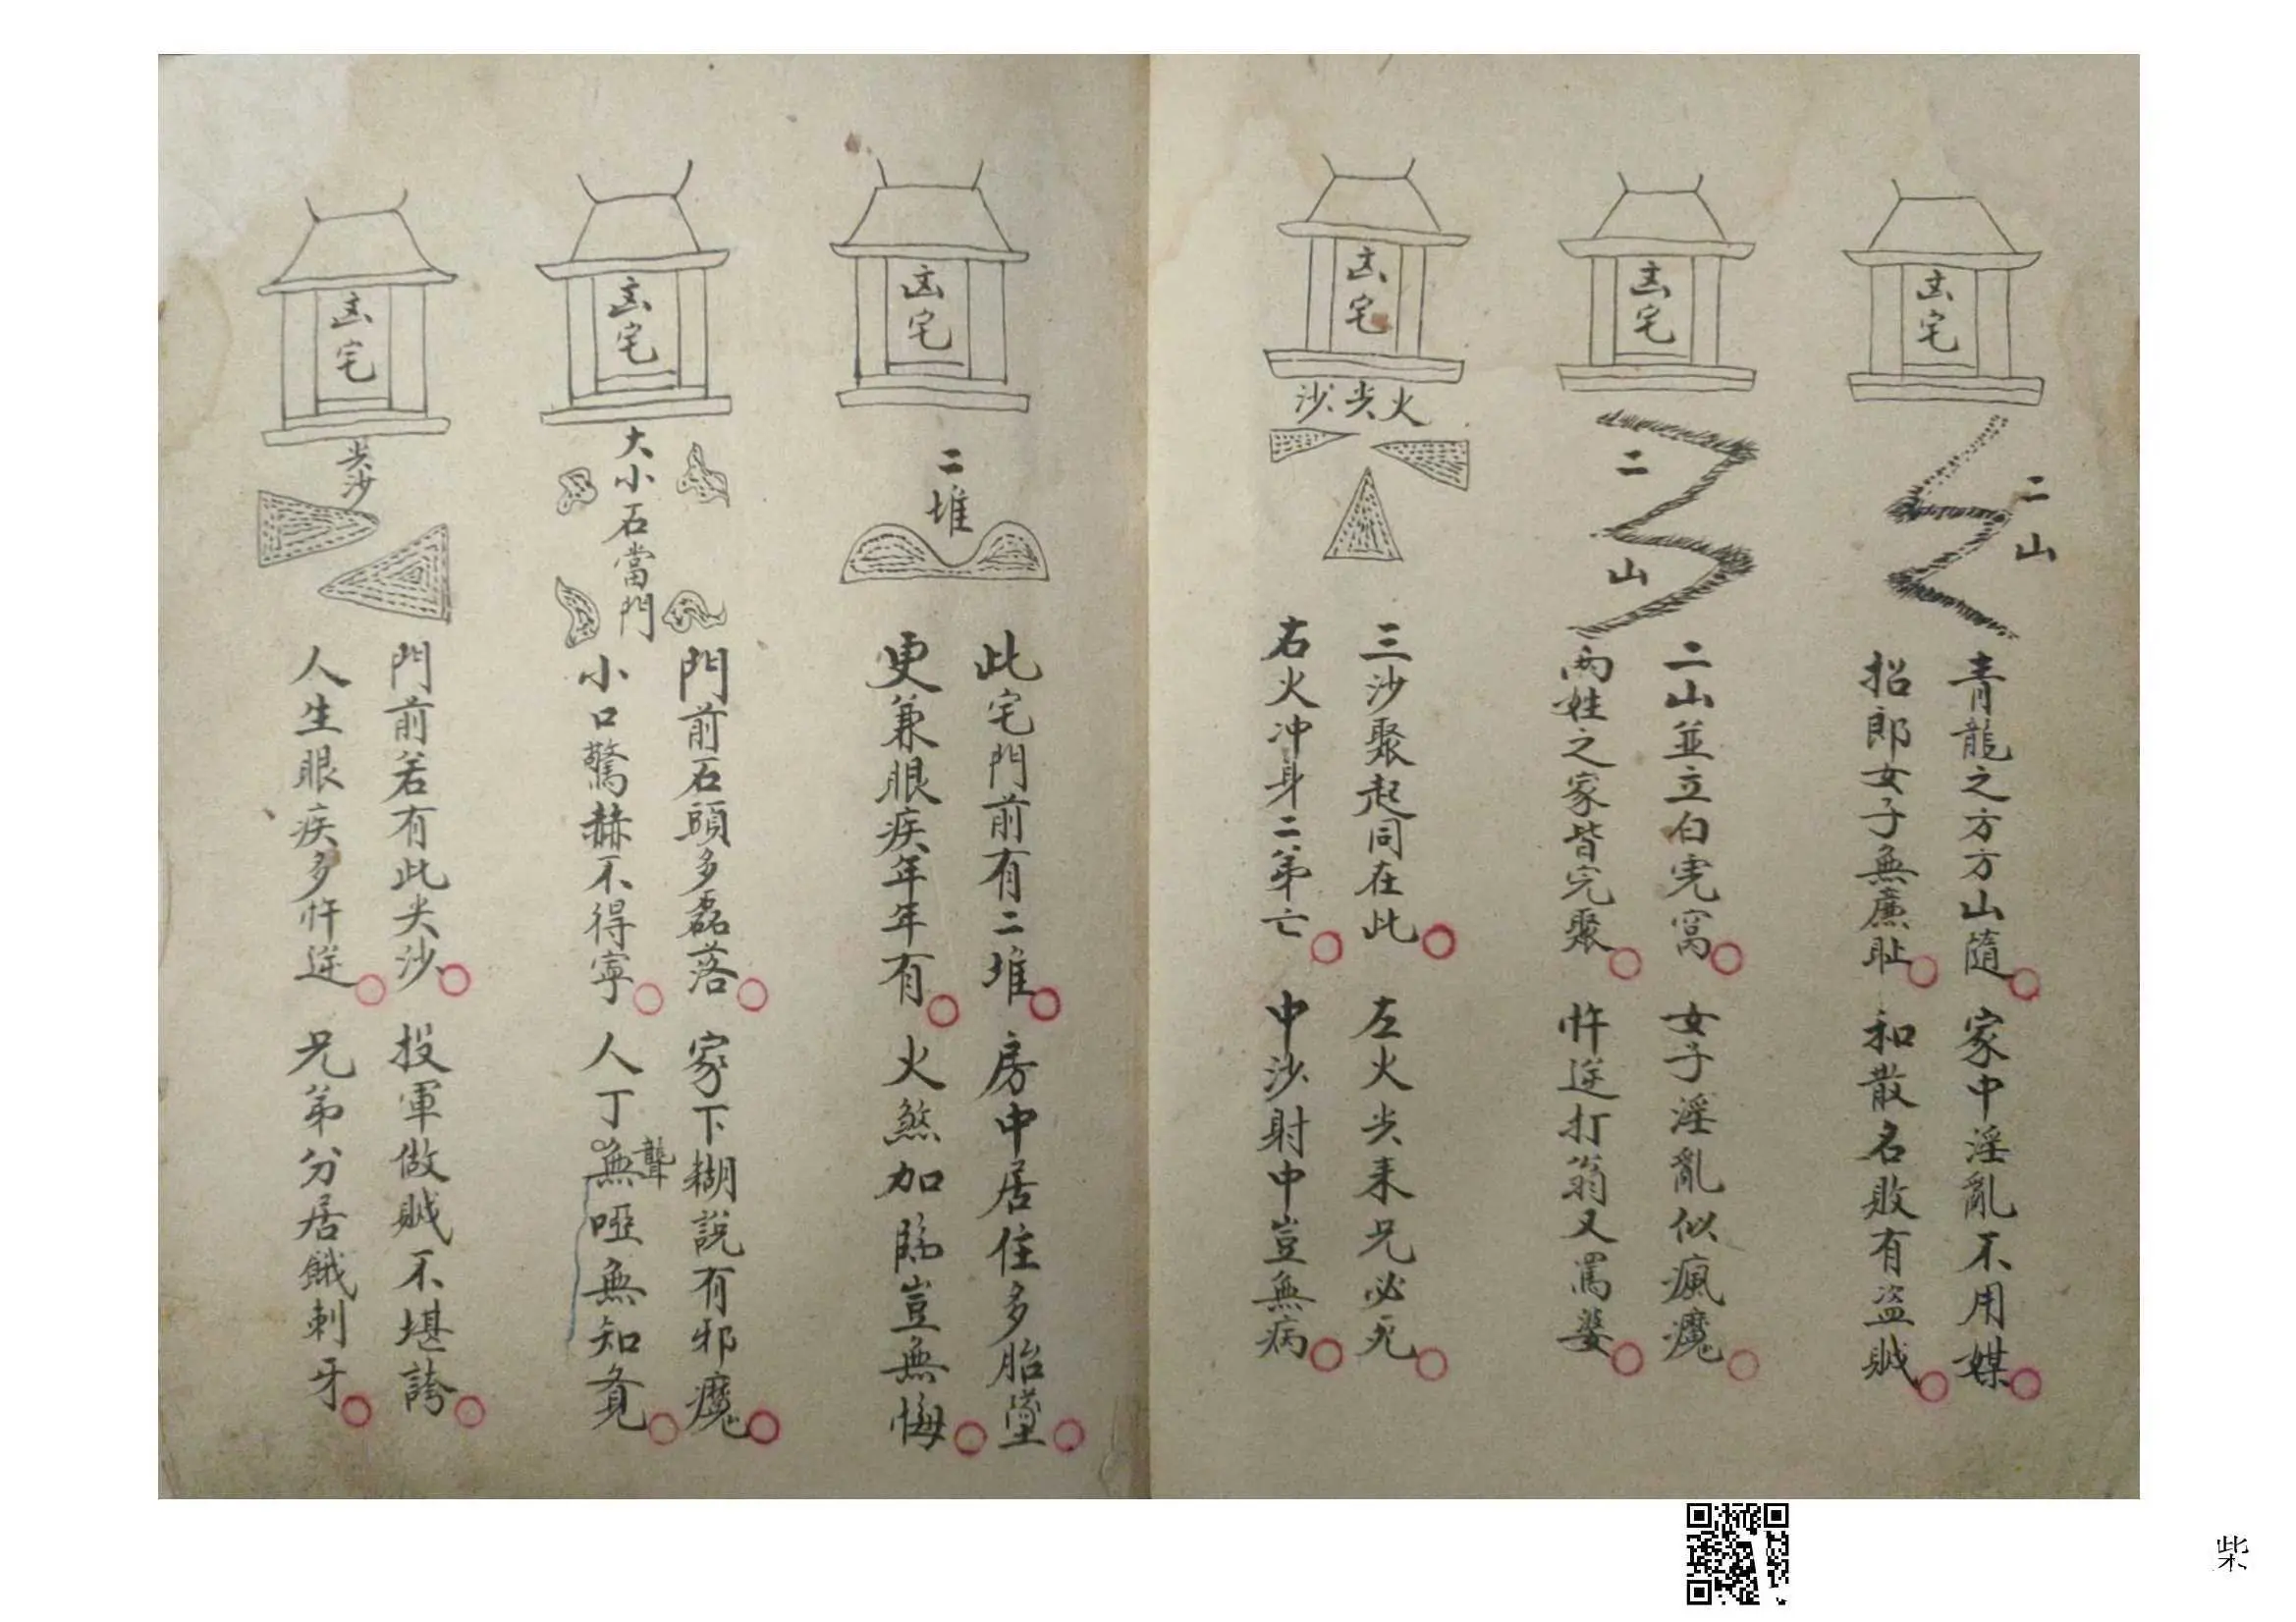 凶宅
二山
青龍之方方山隨
家中淫亂不用媒
招郎女子無廉耻
和散名敗有盜賊
凶宅
二山
二山並立白寃窩
女子淫亂似瘋魔
兩姓之家皆完聚
忤逆打翁又罵婆
凶宅
火尖沙
三沙聚起同在此
左火尖来兄必死
右火冲身二弟亡
中沙射中豈無病
凶宅
二堆
此宅門前有二堆
房中居住多胎墮
更兼眼疾年年有
火煞加臨豈無悔
凶宅
大小石當門
門前石頭多磊落
家下糊說有邪魔
小口驚赫不得寧
人丁無啞無知覔
聾
凶宅
尖沙
門前若有此尖沙
投軍做賊不堪誇
人生眼疾多忤逆
兄弟分居餓刺牙
柴